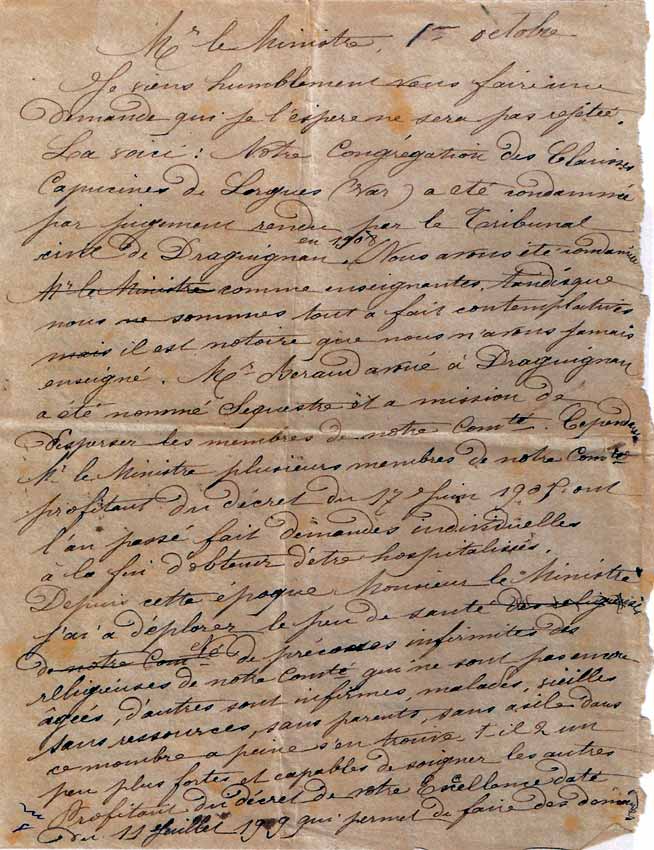 Mr le Ministre, 1er octobre
Je viens humblement vous faire une
demande qui je l'espere ne sera pas rejetée.
La voici : Notre Congrégation des Clarisses
Capucines de Lorgues (Var) a été condamnée
par jugement rendu par le Tribunal
civil de Draguignan en 1908. Nous avons été condamnées
Mr le Ministre comme enseignantes. tandisque
nous ne sommes tout a fait contemplatives
mais il est notoire que nous n'avons jamais
enseigné. Mr avoué à Draguignan
a été nommé Sequestre et a mission de
disperser les membres de notre Comté. Cependant
Mr le Ministre plusieurs membres de notre Comté
profitant du decret du 17 Juin 1905 ont
l'an passé fait demandes individuelles
à la fin d'obtenir d'être hospitalisés.
Depuis cette époque Monsieur le Ministre
j'ai a déplorer le peu de santé des religieuses
de notre Comté de précoses infirmites des
religieuses de notre Comté qui ne sont pas encore
âgées, d'autres sont infirmes, malades, vieilles
sans ressources, sans parents, sans asile dans
ce nombre a peine s'en trouve-t-il 2 un
peu plus fortes et capables de soigner les autres
Profitant du décret de votre Excellence daté
du 11 Juillet 1909 qui permet de faire des